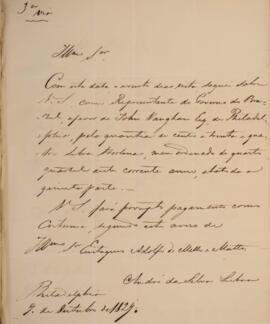 3ª via
Illmo Sor
Com esta data e a vinte dias vista segue sobre
V. S., como Representante do Governo do Bra-
zil, a favor de John Vaughan Esq. de Philadel-
phia, pela quantia de cento e trinta e qua-
tro Libras Sterlinas, meu ordenado de quarto
quartel deste corrente anno, abatida a
quinta parte.
V. S. fará prompto pagamento como
Costuma, segundo este aviso de
Illmo Sr Eustaquio Adolfo de Mello e Mattos
Philadelphia
de Outubro de 1829.